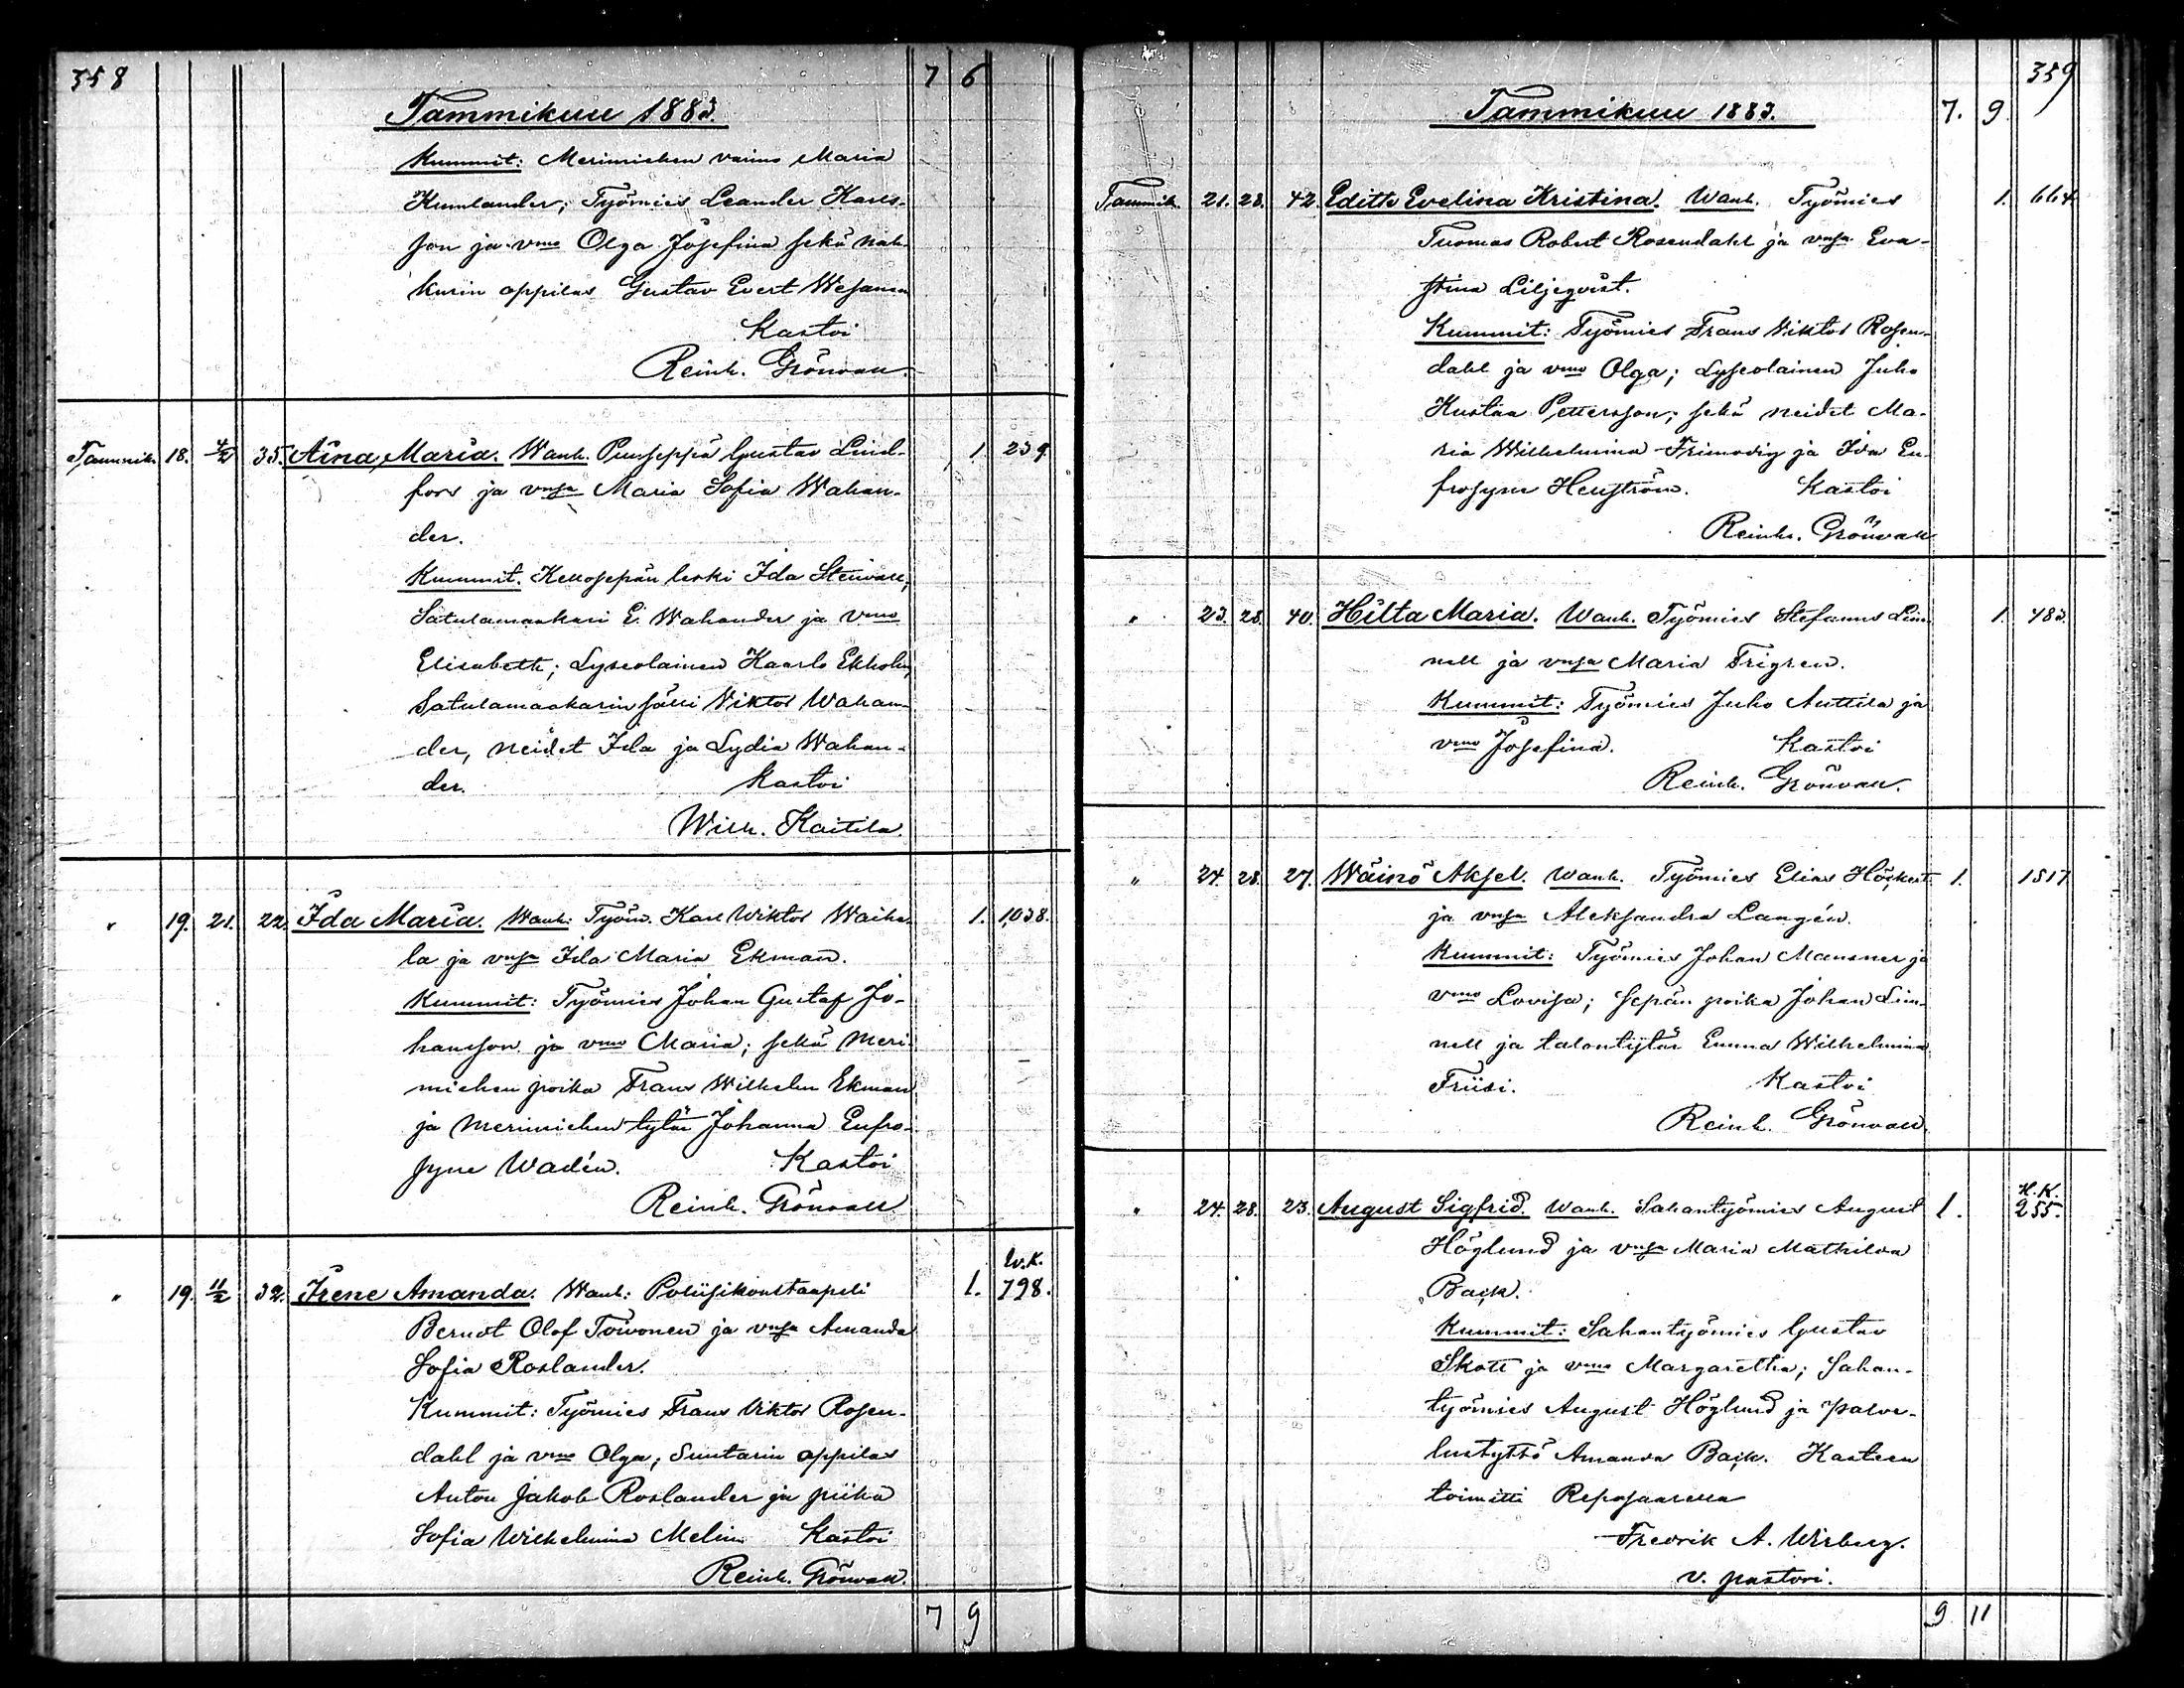 358 7 6
Tammikuu 1883.
Kummit: Merimiehen vaimo Maria
Kumlander; Työmies Leander Karls-
son ja vmo Olga Josefina sekä nah-
kurin oppilas Gustav Evert Wesanen
Kastoi
Reinh. Grönvall.
Tammik. 18. 4/2 35. Aina Maria. Wanh. Puuseppä Gustav Lind- 1. 239.
fors ja vnsa Maria Sofia Wahan-
der.
Kummit. Kellosepän leski Ida Stenvall;
Satulamaakari E. Wahander ja vmo
Elisabeth; Lyseolainen Kaarlo Ekholm,
Satulamaakarin sälli Viktor Wahan-
der, neidet Ida ja Lydia Wahan-
der. Kastoi
Wilh. Kaitila.
" 19. 21. 22. Ida Maria. Wanh: Työm. Karl Wiktor Waiha- 1. 1,038.
la ja vnsa Ida Maria Ekman.
Kummit: Työmies Johan Gustaf Jo-
hansson ja vmo Maria; sekä meri-
miehen poika Frans Wilhelm Ekman
ja merimiehen tytär Johanna Eufro-
syne Wadén. Kastoi
Reinh. Grönvall
" 19. 11/2 32. Irene Amanda. Wanh: Poliisikonstaapeli 1. W.K. 798.
Berndt Olof Toivonen ja vnsa Amanda
Sofia Roslander.
Kummit: Työmies Frans Viktor Rosen-
dahl ja vmo Olga; Suutarin oppilas
Anton Jakob Roslander ja piika
Sofia Wilhelmina Melin Kastoi
Reinh. Grönvall.
7 9
359
Tammikuu 1883. 7. 9.
Tammik. 21. 28. 42. Edith Evelina Kristina. Wanh. Työmies 1. 664.
Tuomas Robert Rosendahl ja vnsa Eva-
stina Liljeqvist.
Kummit: Työmies Frans Viktor Rosen-
dahl ja vmo Olga; Lyseolainen Juho
Kustaa Pettersson; sekä neidet Ma-
ria Wilhelmina Frimodig ja Ida Eu-
frosyne Hellström. Kastoi
Reinh. Grönvall
" 23. 28. 40. Hilta Maria. Wanh. Työmies Stefanus Lin- 1. 483.
nell ja vnsa Maria Frigren.
Kummit: Työmies Juho Anttila ja
vmo Josefina. Kastoi
Reinh. Grönvall.
" 24. 28. 27. Wäinö Aksel. Wanh. Työmies Elias Höckert 1. 1517
ja vnsa Aleksandra Langén.
Kummit: Työmies Johan Mansner ja
vmo Lovisa; sepän poika Johan Lin-
nell ja talontytär Emma Wilhelmina
Friisi. Kastoi
Reinh. Grönvall.
" 24. 28. 23. August Sigfrid. Wanh. Sahantyömies August 1. H.K. 255.
Höglund ja vnsa Maria Mathilda
Back.
Kummit: Sahantyömies Gustav
Skott ja vmo Margaretha; Sahan-
työmies August Höglund ja palve-
lustyttö Amanda Back. Kasteen
toimitti Reposaarella
Fredrik A. Wirberg.
v. pastori.
9. 11